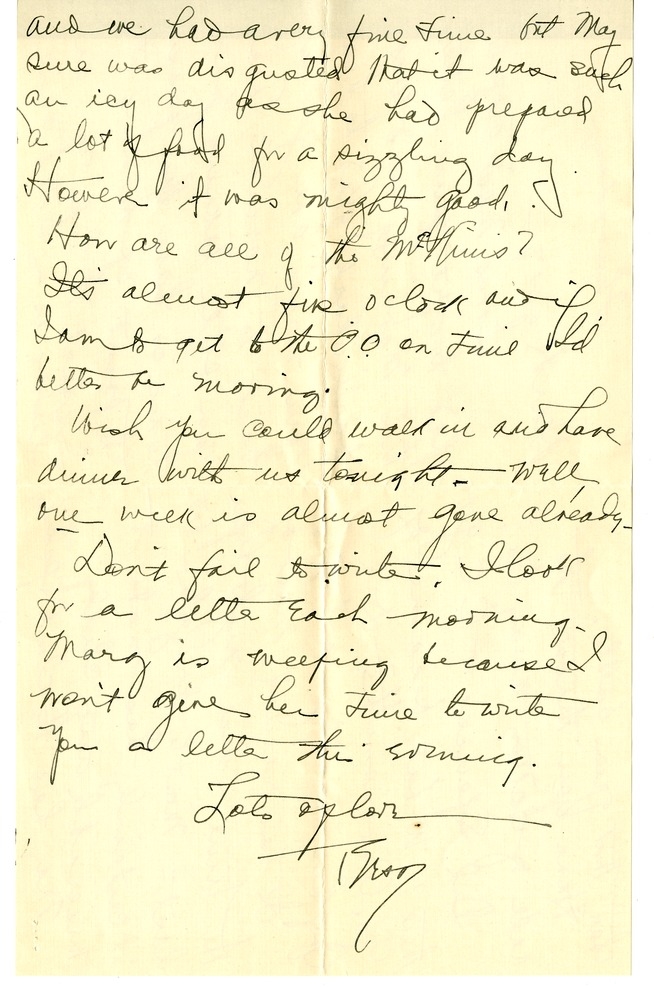 and we had a very fine time but May
sure was disgusted that it was such
an icy day as she had prepared
a lot of food for a sizzling day.
However it was mighty good.
How are all of the
It's almost five o'clock and if
I am to get to the P.O. on time I'd
better be moving.
Wish you could walk in and have
dinner with us tonight - Well,
one week is almost gone already -
Don't fail to write. I look
for a letter each morning.
Marg is weeping because I
won't give her time to write
you a letter this evening.
Lots of love